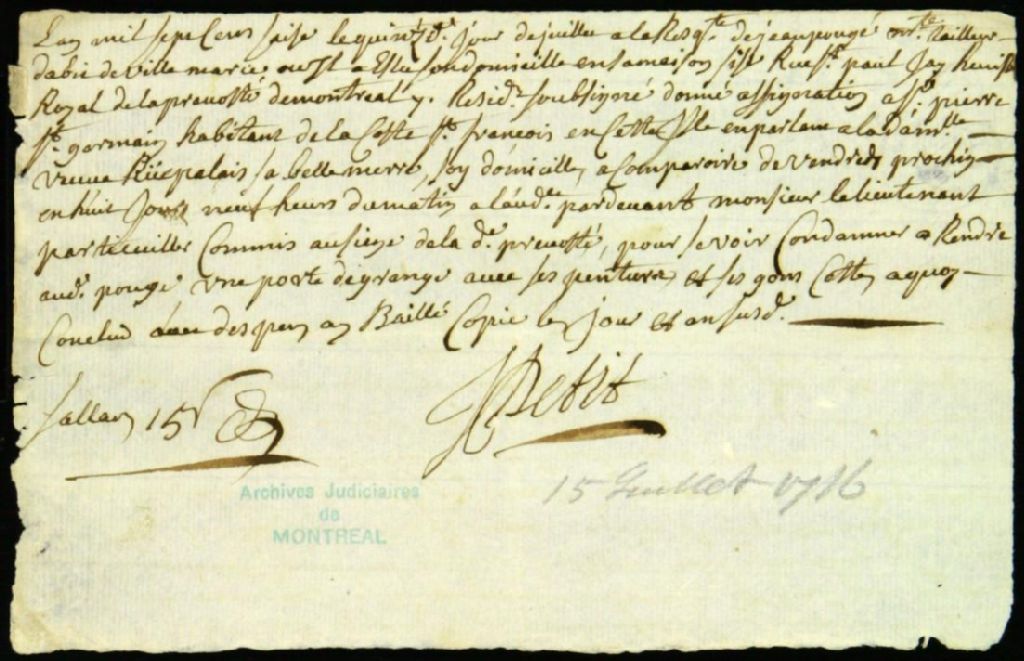 Lan mil sept Cens saise le quinze.e jour de juillet a la Req.te de jean pougé m.tre tailleur
dabis de ville marie, ou Il a Eslu son domicille en sa maison size Rue S.t paul Jay huissier
Royal de la prevosté de montreal y. Resid.t soubsigné donné assignation a S.r pierre
S.t germain habitant de la Coste S.t francois en Cette Isle en parlant a la dam.lle
veuve Rüepalais sa belle merre, Son domicille, a Comparoire de vendredy prochin
en huit Jours neuf heurs du matin a laud.ce pardevant monsieur le lieutenant
particuiller Commis au siege de la d.e prevosté, pour se voir Condamner a Rendre
aud. pougé vne porte de grange avec ses penture et ses gons Coste a quoy
Conclud avec despen an Baillé Copie les jour et an susd.
JPetit
sallair 15 s
Archives Judiciaires
de
MONTREAL
15 Juillet 1716